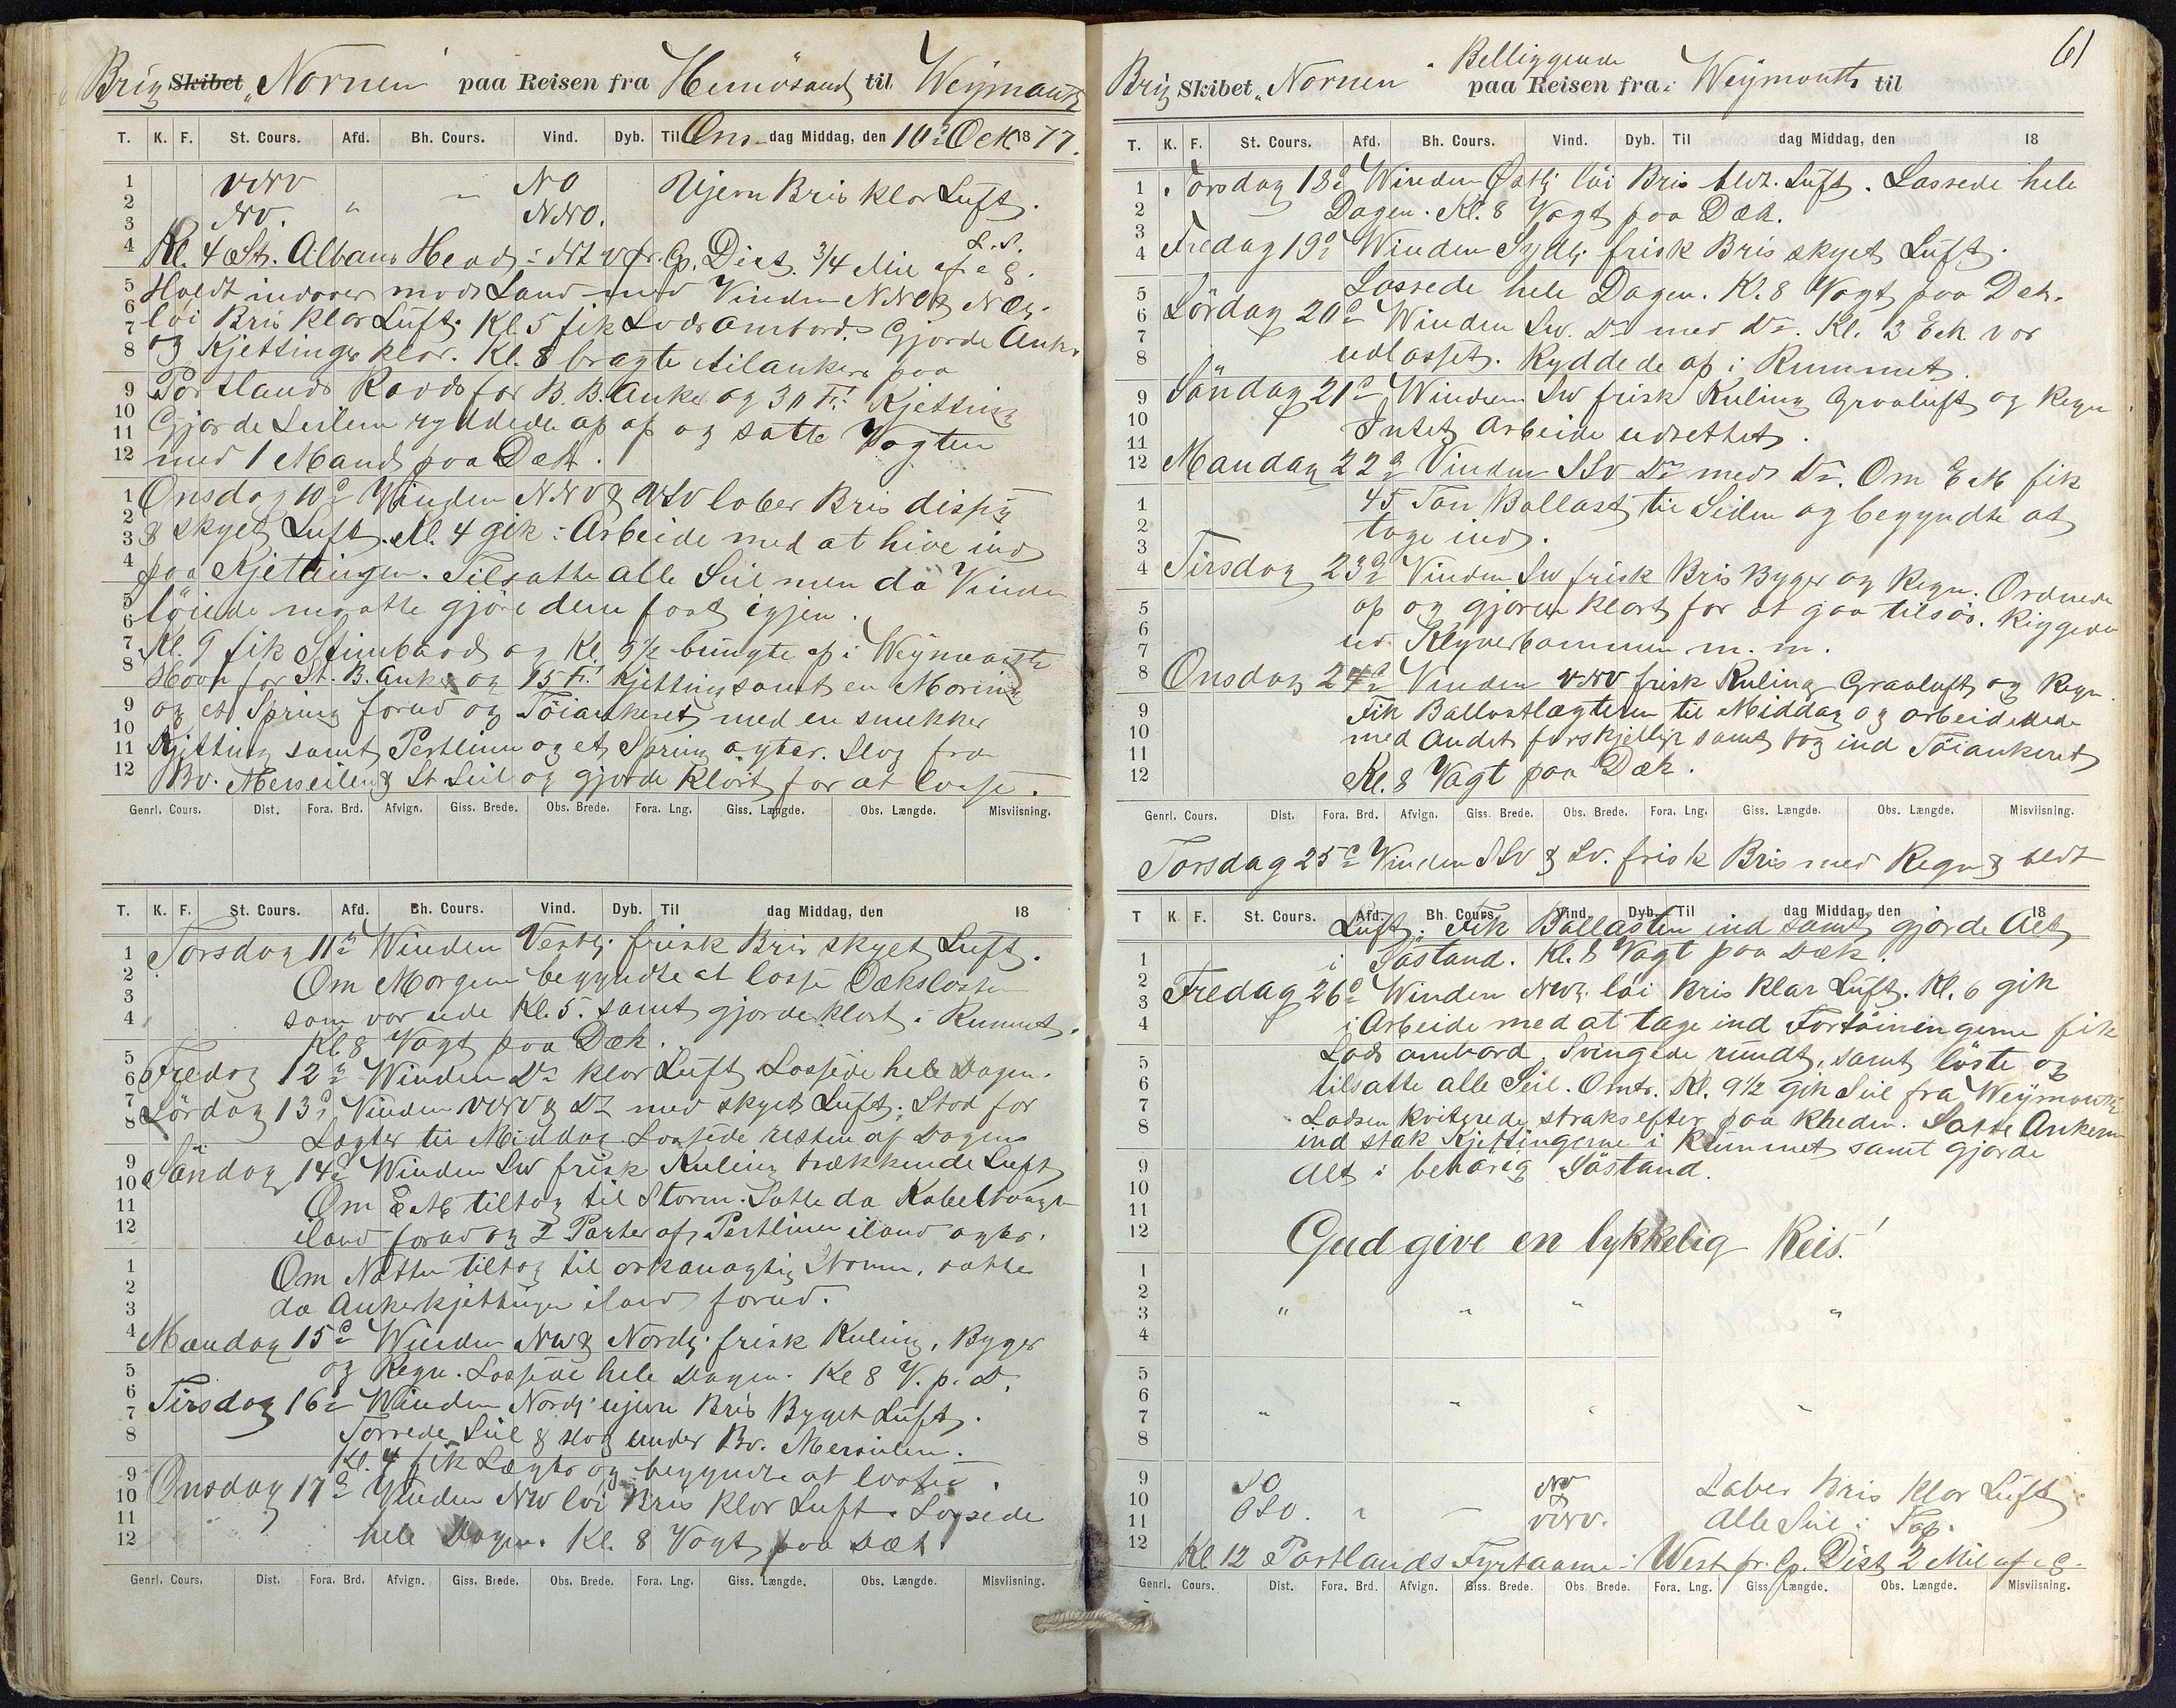 Brig Skibet „Nornen" paa Reisen fra Hernösand til Weymouth
T. K. F. St. Cours. Afd. Bh. Cours. Vind. Dyb. Til Ons- dag Middag, den 10de Oct. 1877.
1 VNV NO Ujevn Bris klar Luft.
2 NV. " - NNO.
3
4 Kl. 4 St. Albans Head i fr. Cp. Dist. 3/4 Mil af
5 Holdt indover mod Land med Vinden NNO &
6 löi Bris klar Luft. Kl. 5 fik Lods ombord. Gjorde Anker
7 og Kjettinger klar. Kl. 8 bragte tilankers paa
8
9 Portlands Raods for B.B. Anker og 30 Fv. Kjetting
10 Gjorde Seilene ryddede op og satte Vagten
11
12 med 1 Mand paa Dæk.
1 Onsdag 10de Vinden NNV & VSV laber Bris disig
2 & skyet Luft. Kl. 4 gik i Arbeide med at hive ind
3
4 paa Kjettingen. Tilsatte alle Seil men da Vinden
5 löiede maatte gjöre dem fast igjen.
6
7 Kl. 9 fik Stimbaad og Kl. 9 1/2 bungte op i Weymouth
8 Havn for St. B. Anker og 15 Fv. Kjetting samt en Moring
9 og et Spring forud og Töiankeret med en smekker
10
11 Kjetting samt Pertline og et Spring agter. Slog fra
12 Bv. Merseilen & St. Seil og gjorde klart for at losse.
Genrl. Cours. Dist. Fora. Brd. Afvign. Giss. Brede. Obs. Brede. Fora. Lng. Giss. Længde. Obs. Længde. Misviisning.
T. K. F. St. Cours. Afd. Bh. Cours. Vind. Dyb. Til dag Middag, den 18
1 Torsdag 11te Winden Vestlj. frisk Bris skyet Luft.
2 Om Morgenen begyndte at losse Dækslasten
3
4 som var ude Kl. 5. samt gjorde klart i Rummet.
5 Kl. 8 Vagt paa Dæk.
6 Fredag 12te Winden Do klar Luft Lossede hele Dagen.
7
8 Lördag 13de Vinden VNV & Do med skyet Luft. Stod for
Lægter til Middag Lossede resten af Dagen
9
10 Söndag 14de Winden SW frisk Kuling trækkende Luft
11 Om E.M. tiltog til Storm. Satte da Kabeltouget
12 iland forud og 2 Parter af Pertlinen iland agter.
1 Om Natten tiltog til orkanagtig Storm, satte
2
3 da Ankerkjettingen iland forud.
4 Mandag 15de Winden NW & Nordlj. frisk Kuling, Byger
5 og Regn. Lossede hele Dagen. Kl 8 V. p. D.
6
7 Tirsdag 16de Winden Nordlj. ujevn Bris Byget Luft.
8 Torrede Seil & slog under Bv. Merseilen.
Kl. 4 fik Lægter og begyndte at losse
9
10 Onsdag 17de Vinden NW löi Bris klar Luft. Lossede
11
12 hele Dagen. Kl. 8 Vagt paa Dæk.
Genrl. Cours. Dist. Fora. Brd. Afvign. Giss. Brede. Obs. Brede. Fora. Lng. Giss. Længde. Obs. Længde. Misviisning.
61
Beliggende
Brig Skibet „Nornen" paa Reisen fra i Weymouth til
T. K. F. St. Cours. Afd. Bh. Cours. Vind. Dyb. Til dag Middag, den 18
1 Torsdag 18de Winden Østlj. löi Bris bldt. Luft. Lossede hele
2 Dagen. Kl. 8 Vagt paa Dæk.
3
4 Fredag 19de Winden Sydlj. frisk Bris skyet Luft.
5 Lossede hele Dagen. Kl. 8 Vagt paa Dæk.
6 Lördag 20de Winden SW. Do med Do. Kl. 3 E.M. var
7
8 udlosset. Ryddede op i Rummet.
9 Söndag 21de Winden SW frisk Kuling Graaluft og Regn.
10 Intet Arbeide udrettet.
11
12 Mandag 22de Vinden SSV Do med Do. Om E M fik
1 45 Ton Ballast til Siden og begyndte at
2 tage ind.
3
4 Tirsdag 23de Vinden SW frisk Bris Byger og Regn. Ordnede
5 op og gjorde klart for at gaa tilsös. Riggede
6
7 ud Klyverbommen m. m.
8 Onsdag 24de Vinden VNV frisk Kuling Graaluft og Regn.
9 Fik Ballastlægteren til Middag og arbeidede
10 med Andet forskjelligt samt tog ind Töiankeret
11
12 Kl. 8 Vagt paa Dæk.
Genrl. Cours. Dist. Fora. Brd. Afvign. Giss. Brede. Obs. Brede. Fora. Lng. Giss. Længde. Obs. Længde. Misviisning.
Torsdag 25de Vinden SSV & SV. frisk Bris med Regn & bldt
T K F. St. Cours. Afd. Bh. Cours. Vind. Dyb. Til dag Middag, den 18
Luft. Fik Ballasten ind samt gjorde Alt
1 i Söstand. Kl. 8 Vagt paa Dæk.
2
3 Fredag 26de Winden NW. löi Bris klar Luft. Kl. 6 gik
4 i Arbeide med at tage ind Fortöiningerne fik
5 Lods ombord, Svingede rundt, samt löste og
6 tilsatte alle Seil. Omtr. Kl. 9 1/2 gik Seil fra Weymouth.
7 Lodsen kviterede straks efter paa Rheden. Satte Ankerne
8 ind stak Kjettingerne i Rummet samt gjorde
9 Alt i behörig Söstand.
10
11
12 Gud give en lykkelig Reis!
1
2
3 " " " "
4
5
6
7 " " " "
8
9 SO NV Laber Bris klar Luft
10 OSO. " - &
11 VNV. Alle Seil i Top.
12 Kl. 12 Portlands Fyrtaarne i West pr. Cp. Dist 2 Mil af
Genrl. Cours. Dist. Fora. Brd. Afvign. Giss. Brede. Obs. Brede. Fora. Lng. Giss. Længde. Obs. Længde. Misviisning.